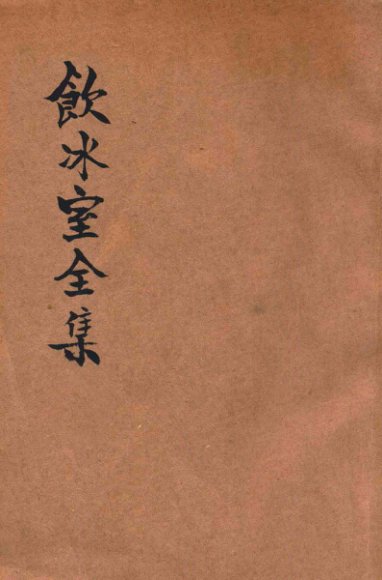 飲冰室全集